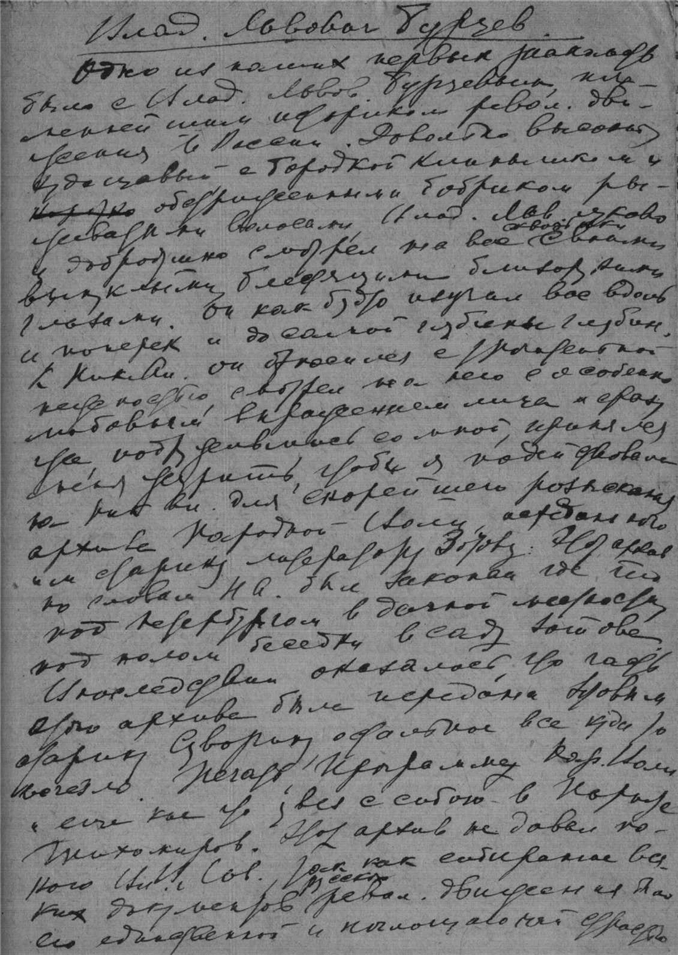 Влад. Львович Бурцев.
Одно из наших первых знакомств
было с Влад. Львов. Бурцевым, пла-
меннейшим историком револ. дви-
жения в России. Довольно высокий
худощавый с бородкой клинышком и
обстриженными бобриком ры-
жеватыми волосами, Влад. Льв.
и добродушно смотрел на все своими
выпуклыми блестящими близорукими
глазами. Он как будто изучал все вдоль
и поперек и до самой глубины глубин.
К Ник. Ал. он относился с
нежностью, смотрел на него с особенно
любовным выражением лица и сразу
же, подружившись со мной, принялся
меня, чтобы я подействовала
на Ник. Ал. для скорейшего розыскания
архива Народной Воли, переданного
им старику литератору Зотову. Этот архив
по словам Н.А. был закопан где то
под Петербургом в дачной местности
под полом беседки в саду Зотова.
Впоследствии оказалось, что часть
этого архива была передана Зотовым
старику Суворину остальное все куда то
исчезло. Печать, программу Нар. Воли
и еще кое что увез с собою в Париж
Тихомиров. Этот архив не давал по-
коя Вл. Льв. так как собирание вся-
ких документов русского револ. движения было
его единственной и поглощающей страстью